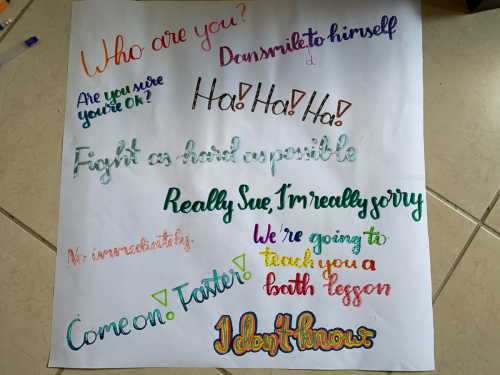 Who are you?
Dan smile to himself
d
Are you sure
you're ok?
Ha! Ha! Ha!
Fight as hard as possible
Really Sue, I'm really sorry
No immediately.
We're going to
teach you a
bath lesson
Come on! Faster!
I don't know